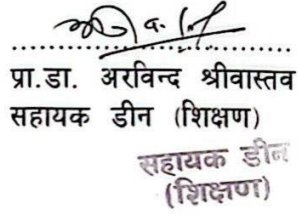 प्रा.डा. अरविन्द श्रीवास्तव
सहायक डीन (शिक्षण)
सहायक डीन
(शिक्षण)